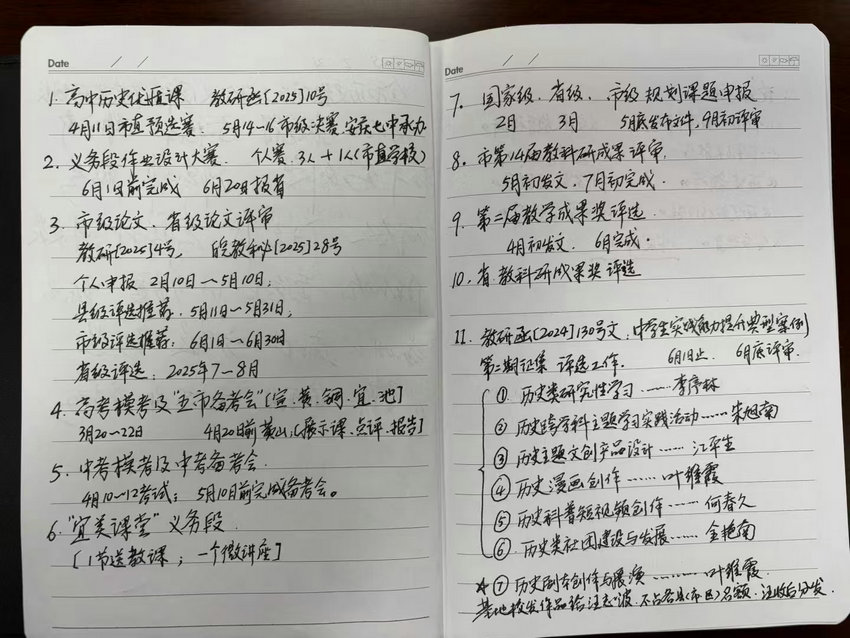 Date / /
1. 高中历史优质课 教研函[2025]10号
4月11日市直预选赛. 5月14-16市级决赛.安庆七中承办
2. 义务段作业设计大赛. 个人赛. 3人+1人(市直学校)
6月1日前完成 6月20日报省
3. 市级论文. 省级论文评审
教研[2025]4号, 皖教科秘[2025]28号
个人申报 2月10日~5月10日;
县级评选推荐: 5月11~5月31日;
市级评选推荐: 6月1~6月30日
省级评选: 2025年7~8月
4. 高考模考及"五市备考会"[宣.黄.铜.宜.池]
3月20~22日 4月20日前黄山;[展示课.点评.报告]
5. 中考模考及中考备考会.
4月10~12考试; 5月10日前完成备考会。
6. "宜美课堂"义务段.
[1节送教课; 一个微讲座]
Date / /
7. 国家级. 省级. 市级规划课题申报
2日 3月 5月底发布文件, 9月初评审
8. 市第14届教科研成果评审.
5月初发文. 7月初完成.
9. 第二届教学成果奖评选.
4月初发文. 6月完成.
10. 省教科研成果奖评选
11. 教研函[2024]130号文: 中学生实践能力提升典型案例
第二期征集 评选工作. 6月1日止. 6月底评审.
① 历史类研究性学习……李序林
② 历史跨学科主题学习实践活动……朱旭南
③ 历史主题文创产品设计……江平生
④ 历史漫画创作……叶雅霞
⑤ 历史科普短视频创作……何春久
⑥ 历史类社团建设与发展……金艳南
⑦ 历史剧本创作与展演………叶雅霞
基地校发作品给汪志波. 不占各县(市区)名额. 汪收后分发.